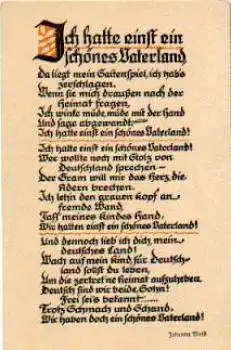 Ich hatte einst ein
schönes Vaterland
Da liegt mein Saitenspiel, ich hab's
zerschlagen.
Wenn sie mich draußen nach der
Heimat fragen,
Ich winke müde, müde mit der Hand
Und sage abgewandt:
Ich hatte einst ein schönes Vaterland!
Ich hatte einst ein schönes Vaterland!
Wer wollte noch mit Stolz von
Deutschland sprechen –
Der Gram will mir das Herz, die
Adern brechen.
Ich lehn den grauen Kopf an
fremde Wand,
Faß meines Kindes Hand:
Wir hatten einst ein schönes Vaterland!
Und dennoch lieb ich dich, mein
deutsches Land!
Wach auf mein Kind, für Deutsch-
land sollst du leben,
Um die zertretne Heimat aufzuheben.
Deutsch sind wir beide, Sohn!
Frei sei's bekannt:
Trotz Schmach und Schand,
Wir haben doch ein schönes Vaterland!
Johanna Wolff